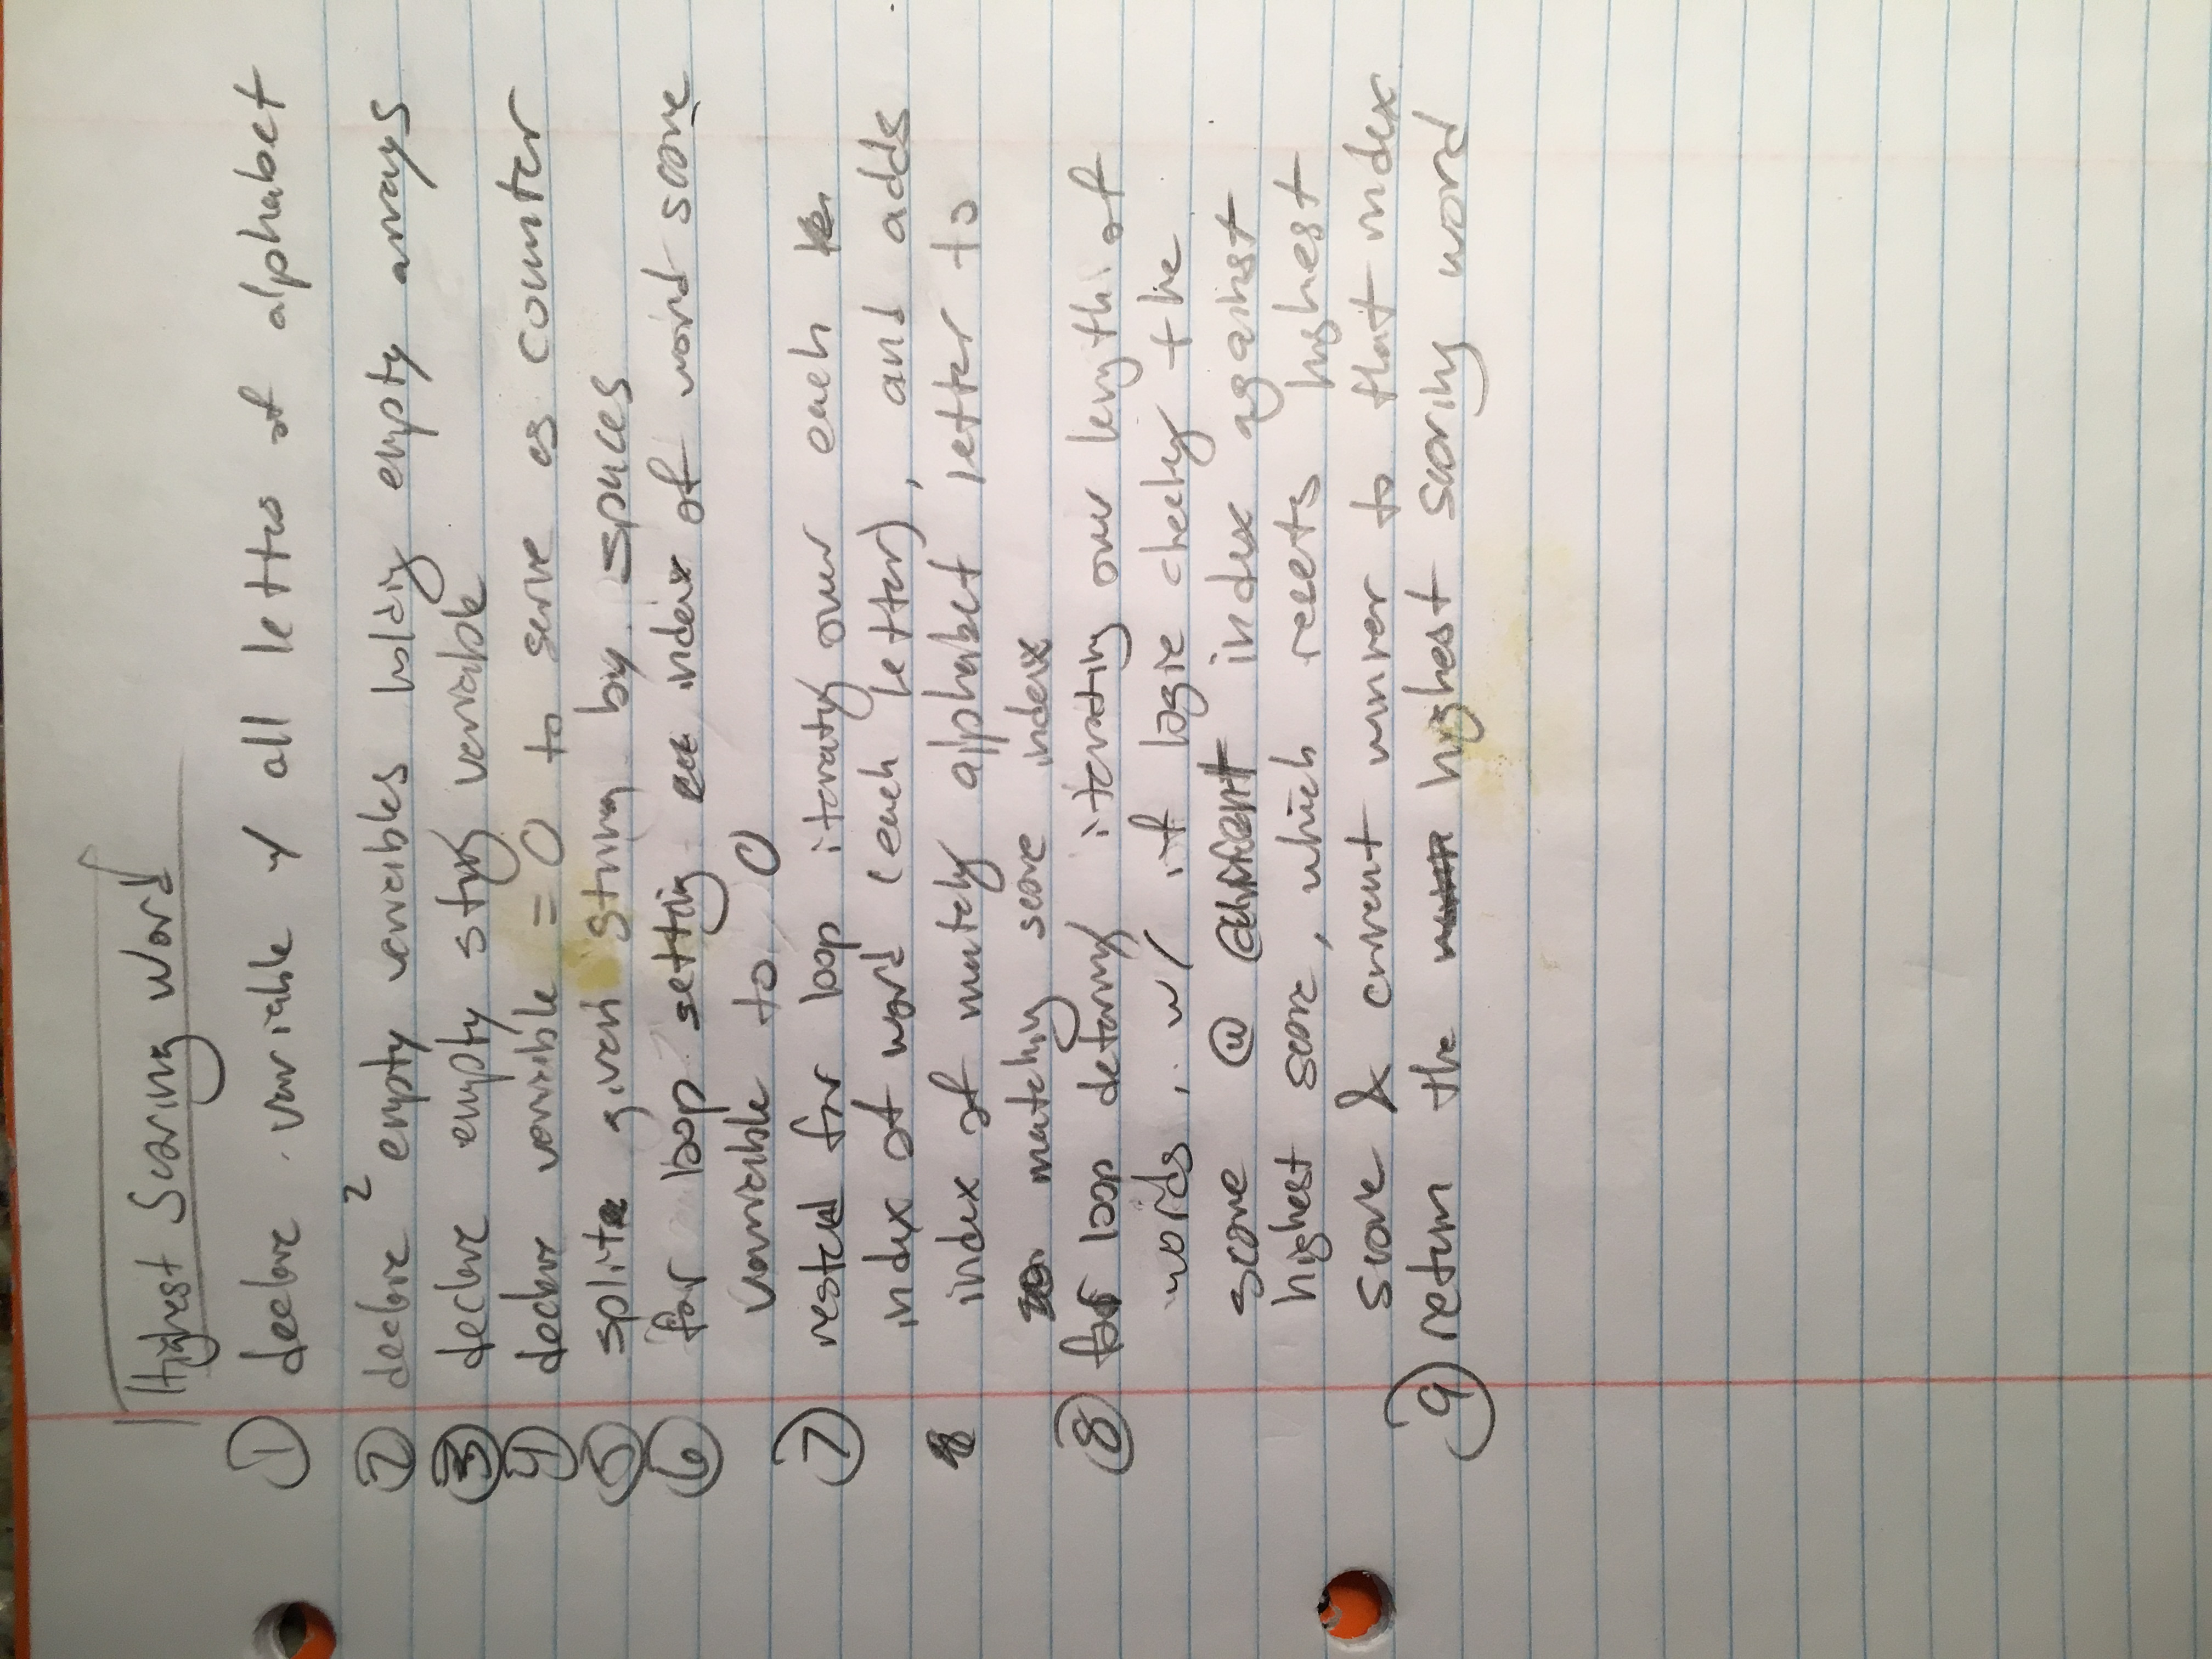 Highest Scoring Word
① declare variable w/ all letters of alphabet
② declare 2 empty variables holding empty arrays
③ declare empty string variable
④ declare variable = 0 to serve as counter
⑤ split given string by spaces
⑥ for loop setting index of word score
variable to 0
⑦ nested for loop iterating over each
index of word (each letter), and adds
index of matching alphabet letter to
matching score index
⑧ for loop iterating over length of
words, w/ if logic checking the
score @ current index against
highest score, which resets highest
score & current winner to that index
⑨ return the highest scoring word